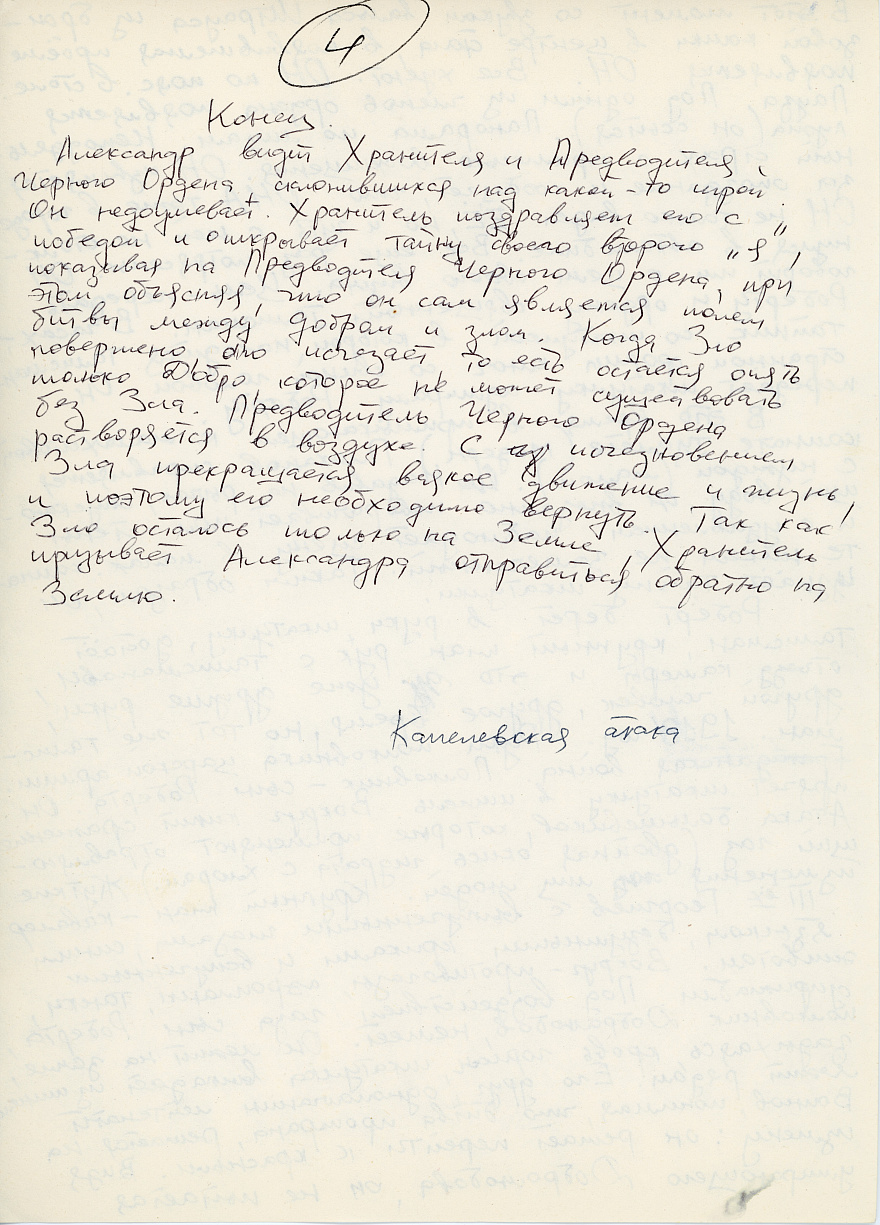 4
Конец.
Александр видит Хранителя и Предводителя
Черного Ордена, склонившихся над какой-то игрой.
Он недоумевает. Хранитель поздравляет его с
победой и открывает тайну своего второго „я",
показывая на Предводителя Черного Ордена, при
этом объясняя, что он сам является полем
битвы между добром и злом. Когда Зло
повержено оно исчезает, то есть остается опять
только Добро, которое не может существовать
без Зла. Предводитель Черного Ордена
растворяется в воздухе. С исчезновением
Зла прекращается всякое движение и жизнь,
и поэтому его необходимо вернуть. Так как
Зло осталось только на Земле, Хранитель
призывает Александра отправиться обратно на
Землю.
Каппелевская атака